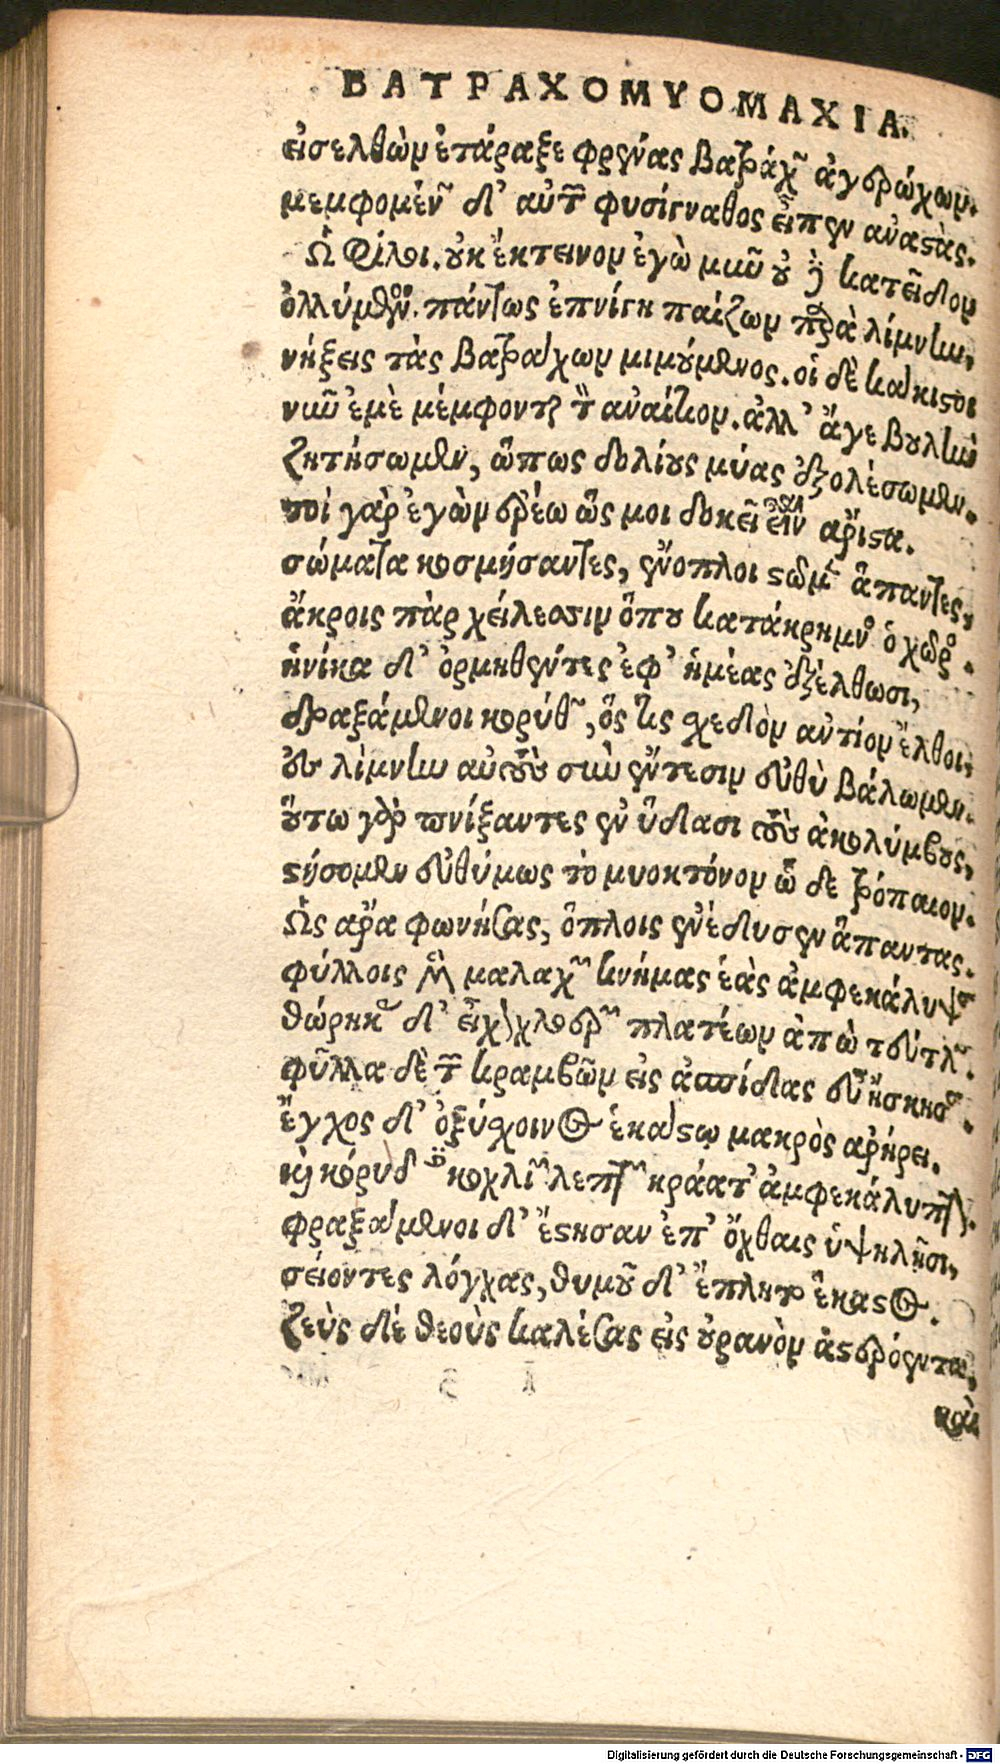 ΒΑΤΡΑΧΟΜΥΟΜΑΧΙΑ.
εἰσελθὼν ἐτάραξε φρένας βατράχων ἀγερώχων.
μεμφομένων δ' αὐτῶν φυσίγναθος εἶπεν ἀναστὰς.
Ὦ φίλοι. οὐκ ἔκτεινον ἐγὼ μῦν οὐδὲ κατεῖδον
ὀλλύμενον. πάντως ἐπνίγη παίζων παρὰ λίμνην,
νήξεις τὰς βατράχων μιμούμενος. οἱ δὲ κάκιστοι
νῦν ἐμὲ μέμφονται τὸν ἀναίτιον. ἀλλ' ἄγε βουλὴν
ζητήσωμεν, ὅπως δολίους μύας ἐξολέσωμεν.
τοὶ γὰρ ἐγὼν ἐρέω ὥς μοι δοκεῖ εἶναι ἄριστα.
σώματα κοσμήσαντες, ἔνοπλοι στῶμεν ἅπαντες,
ἄκροις πὰρ χείλεσσιν ὅπου κατάκρημνος ὁ χῶρος.
ἡνίκα δ' ὁρμηθέντες ἐφ' ἡμέας ἐξέλθωσι,
δραξάμενοι κορύθων, ὅς τις σχεδὸν ἀντίον ἔλθοι,
ἐς λίμνην αὐτοὺς σὺν ἔντεσιν εὐθὺ βάλωμεν.
οὕτω γὰρ πνίξαντες ἐν ὕδασι τοὺς ἀκολύμβους,
στήσομεν εὐθύμως τὸ μυοκτόνον ὧδε τρόπαιον.
Ὣς ἄρα φωνήσας, ὅπλοις ἐνέδυσεν ἅπαντας.
φύλλοις μὲν μαλαχῶν κνήμας ἑὰς ἀμφεκάλυψαν
θώρηκας δ' εἶχον χλοερῶν πλατέων ἀπὸ τεύτλων.
φύλλα δὲ τῶν κραμβῶν εἰς ἀσπίδας εὖ ἤσκησαν.
ἔγχος δ' ὀξύσχοινος ἑκάστῳ μακρὸς ἀρήρει.
καὶ κόρυθες κοχλιῶν λεπτῶν κράατ' ἀμφεκάλυπτον.
φραξάμενοι δ' ἔστησαν ἐπ' ὄχθαις ὑψηλῇσι,
σείοντες λόγχας, θυμοῦ δ' ἔπλητο ἕκαστος.
ζεὺς δὲ θεοὺς καλέσας εἰς οὐρανὸν ἀστερόεντα,
καὶ
Digitalisierung gefördert durch die Deutsche Forschungsgemeinschaft - DFG